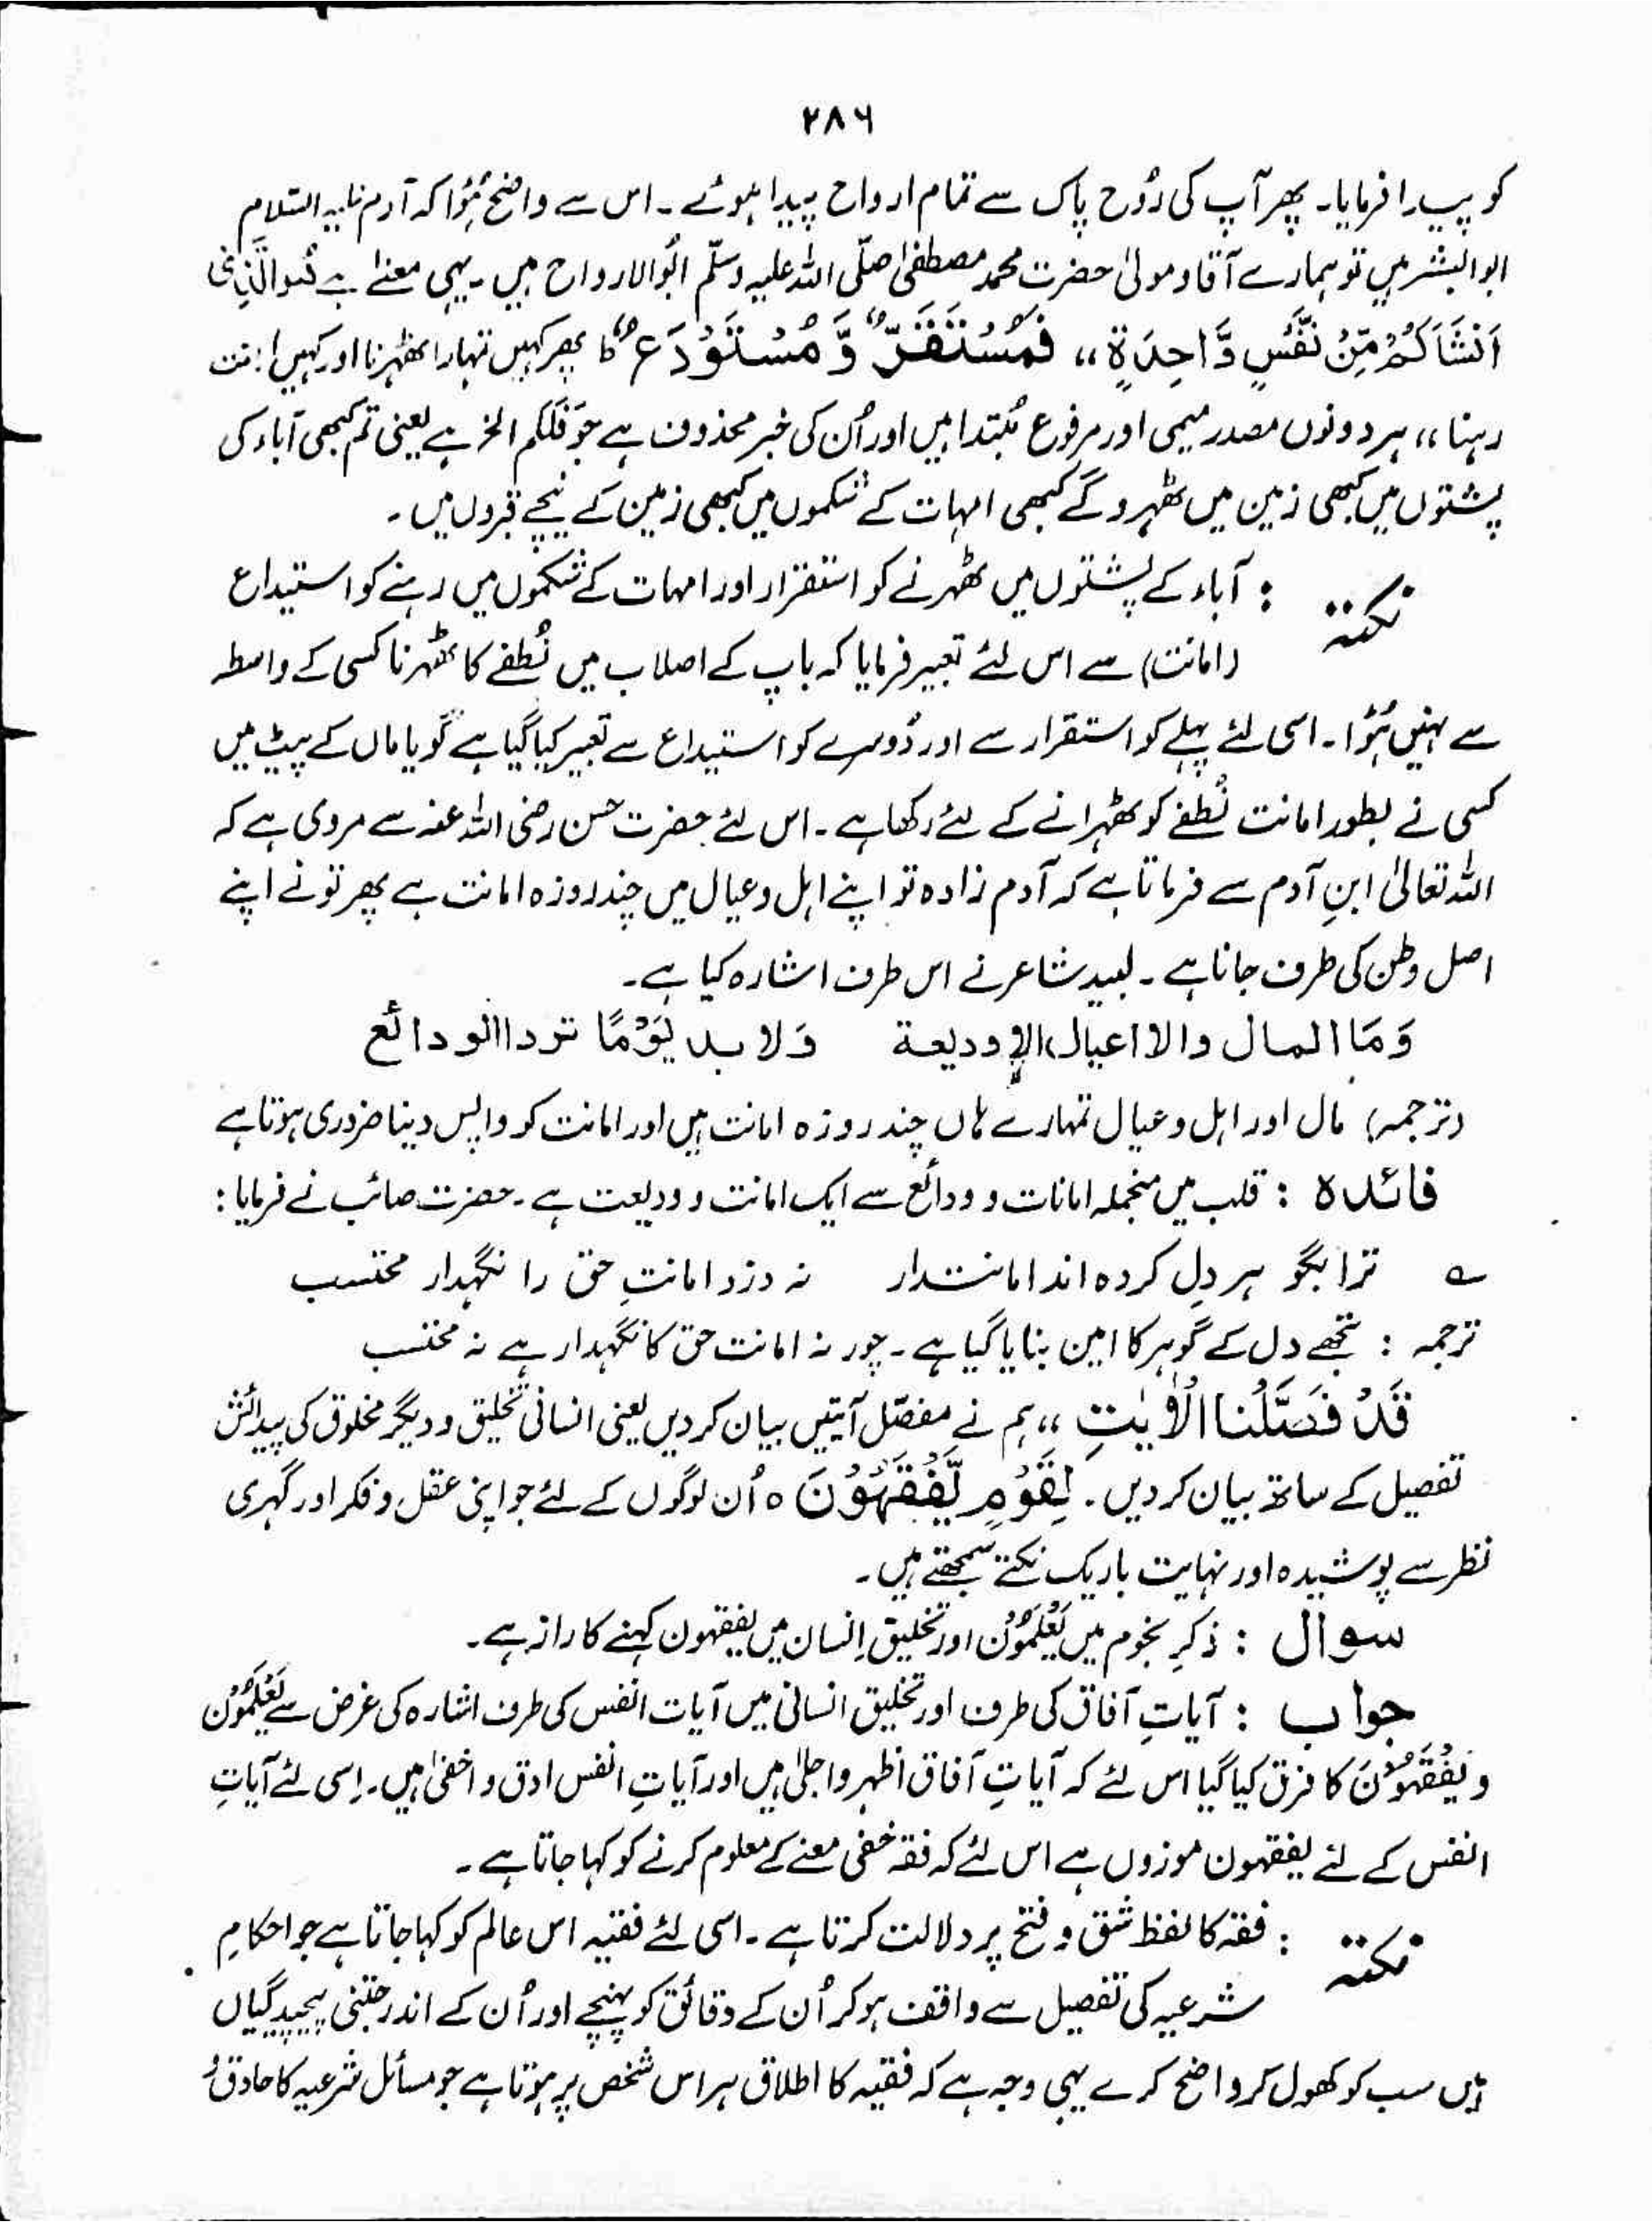 ۲۸۶
کو پیدا فرمایا۔ پھر آپ کی رُوح پاک سے تمام ارواح پیدا ہوئے۔ اس سے واضح ہُوا کہ آدم علیہ السّلام
ابوالبشر ہیں تو ہمارے آقا و مولیٰ حضرت محمد مصطفیٰ صلّی اللہ علیہ وسلّم ابُوالارواح ہیں۔ یہی معنےٰ ہے ھُوالَّذِیْ
اَنْشَاَکُمْ مِّنْ نَّفْسٍ وَّاحِدَۃٍ ،، فَمُسْتَقَرٌّ وَّ مُسْتَوْدَعٌ ط پھر کہیں تمہارا ٹھہرنا اور کہیں امانت
رہنا ،، ہر دونوں مصدر میمی اور مرفوع مُبتدا ہیں اور اُن کی خبر محذوف ہے جو فَلَکم الخ ہے یعنی تم کبھی آباء کی
پشتوں میں کبھی زمین میں ٹھہرو گے کبھی امہات کے شکموں میں کبھی زمین کے نیچے قبروں میں۔
نکتہ : آباء کے پشتوں میں ٹھہرنے کو استقرار اور امہات کے شکموں میں رہنے کو استیداع
(امانت) سے اس لئے تعبیر فرمایا کہ باپ کے اصلاب میں نُطفے کا ٹھہرنا کسی کے واسطہ
سے نہیں ہُوا۔ اسی لئے پہلے کو استقرار سے اور دُوسرے کو استیداع سے تعبیر کیا گیا ہے گویا ماں کے پیٹ میں
کسی نے بطور امانت نُطفے کو ٹھہرانے کے لئے رکھا ہے۔ اس لئے حضرت حسن رضی اللہ عنہ سے مروی ہے کہ
اللہ تعالیٰ ابنِ آدم سے فرماتا ہے کہ آدم زادہ تو اپنے اہل و عیال میں چند روزہ امانت ہے پھر تو نے اپنے
اصل وطن کی طرف جانا ہے۔ لبید شاعر نے اس طرف اشارہ کیا ہے۔
وَمَا المال والا اعیال الا ودیعۃ وَلا بد یَوْمًا تردا الودائع
(ترجمہ) مال اور اہل و عیال تمہارے ہاں چند روزہ امانت ہیں اور امانت کو واپس دینا ضروری ہوتا ہے
فائدہ : قلب میں منجملہ امانات و ودائع سے ایک امانت و ودیعت ہے۔ حضرت صائب نے فرمایا :
؎ ترا بگو ہر دِل کردہ اند امانتدار نہ دزد امانتِ حق را نگہدار محتسب
ترجمہ : تجھے دل کے گوہر کا امین بنایا گیا ہے۔ چور نہ امانت حق کا نگہدار ہے نہ محتسب
قَدْ فَصَّلْنَا الْاٰیٰتِ ،، ہم نے مفصّل آیتیں بیان کر دیں یعنی انسانی تخلیق و دیگر مخلوق کی پیدائش
تفصیل کے ساتھ بیان کر دیں۔ لِقَوْمٍ یَّفْقَہُوْنَ ہ اُن لوگوں کے لئے جو اپنی عقل و فکر اور گہری
نظر سے پوشیدہ اور نہایت باریک نکتے سمجھتے ہیں۔
سوال : ذکرِ نجوم میں یَعْلَمُوْن اور تخلیق اِنسان میں یفقہون کہنے کا راز ہے۔
جواب : آیاتِ آفاق کی طرف اور تخلیق انسانی میں آیات انفس کی طرف اشارہ کی غرض سے یَعْلَمُوْن
و یَفْقَہُوْنَ کا فرق کیا گیا اس لئے کہ آیاتِ آفاق اظہر و اجلیٰ ہیں اور آیاتِ انفس ادق و اخفیٰ ہیں۔ اِسی لئے آیاتِ
انفس کے لئے یفقہون موزوں ہے اس لئے کہ فقہ خفی معنے کے معلوم کرنے کو کہا جاتا ہے۔
نکتہ : فقہ کا لفظ شق و فتح پر دلالت کرتا ہے۔ اسی لئے فقیہ اس عالم کو کہا جاتا ہے جو احکامِ
شرعیہ کی تفصیل سے واقف ہو کر اُن کے دقائق کو پہنچے اور اُن کے اندر جتنی پیچیدگیاں
ہیں سب کو کھول کر واضح کرے یہی وجہ ہے کہ فقیہ کا اطلاق ہر اس شخص پر ہوتا ہے جو مسائل شرعیہ کا حاذق